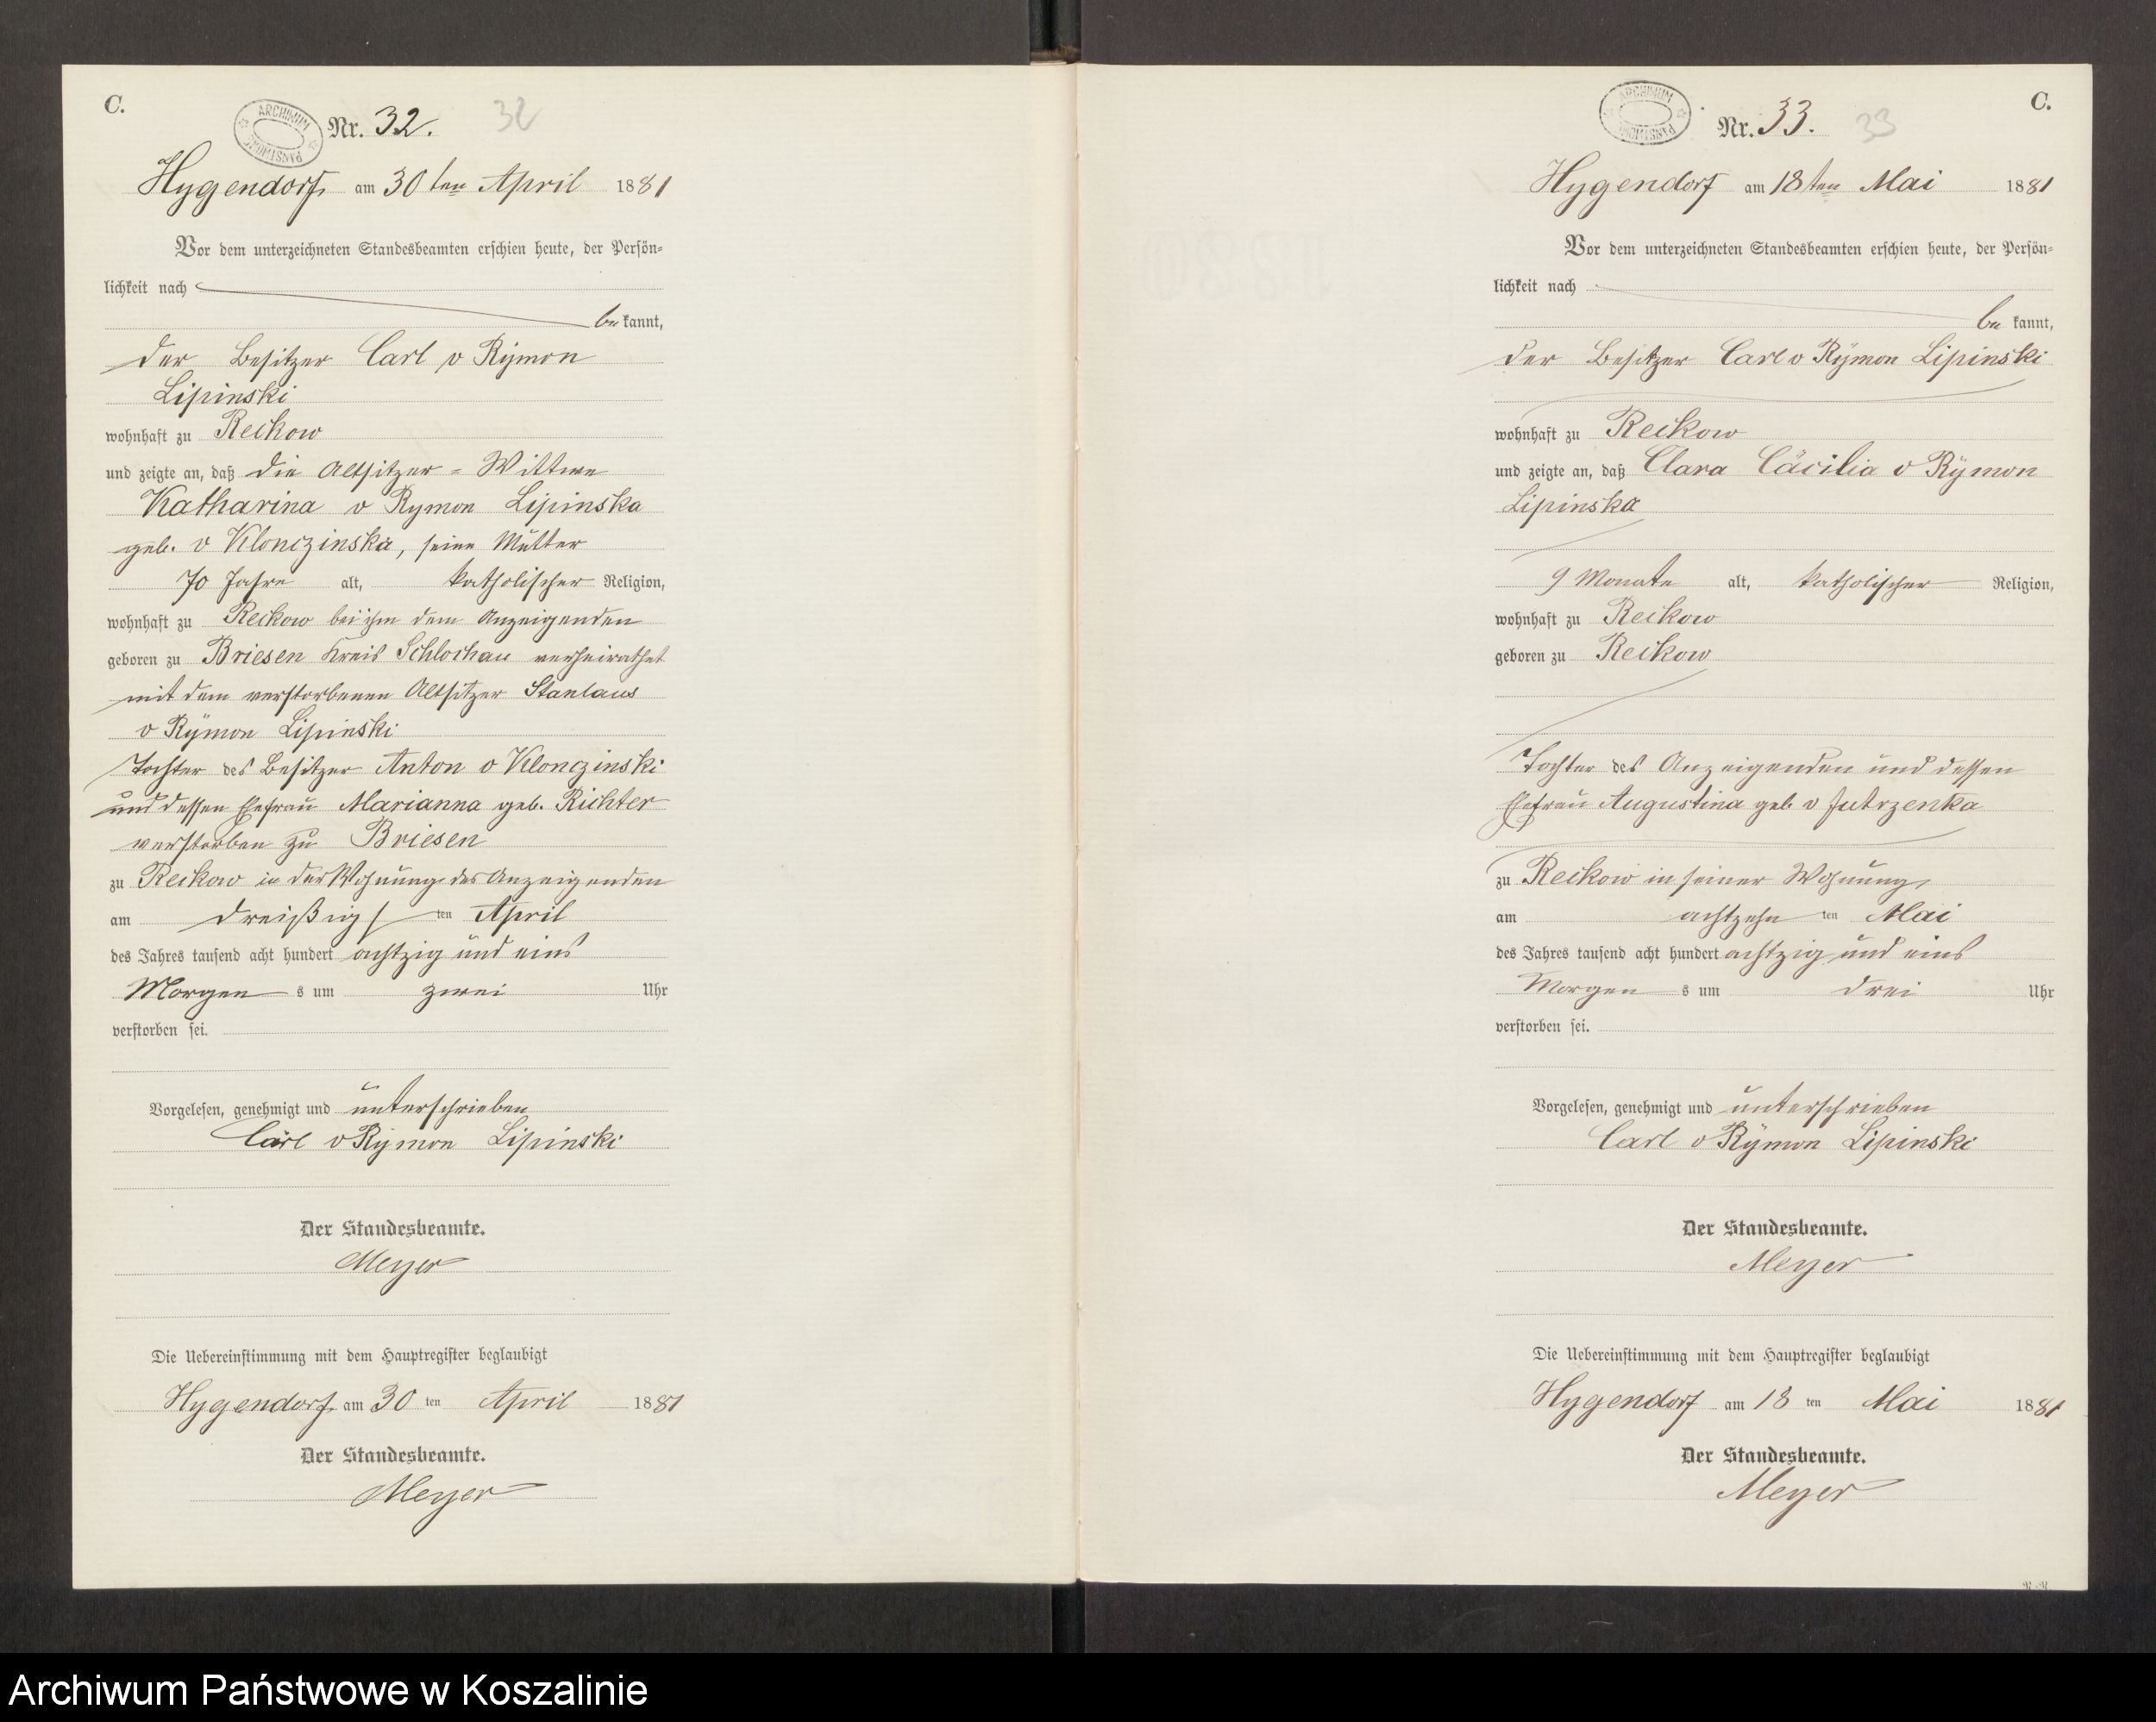 C.
ARCHIWUM PAŃSTWOWE
Nr. 32. 32
Hygendorf am 30 ten April 1881
Vor dem unterzeichneten Standesbeamten erschien heute, der Persön-
lichkeit nach
be kannt,
der Besitzer Carl v Rÿmon
Lipinski
wohnhaft zu Reckow
und zeigte an, daß die Altsitzer-Wittwe
Katharina v Rymon Lipinska
geb. v Klonczinska, seine Mutter
70 Jahre alt, katholischer Religion,
wohnhaft zu Reckow bei ihm dem Anzeigenden
geboren zu Briesen Kreis Schlochau verheirathet
mit dem verstorbenen Altsitzer Stanlaus
v Rÿmon Lipinski
Tochter des Besitzer Anton v Klonczinski
und dessen Ehefrau Marianna geb. Richter
verstorben zu Briesen
zu Reckow in der Wohnung des Anzeigenden
am dreißig ten April
des Jahres tausend acht hundert achtzig und eins
Morgen s um zwei Uhr
verstorben sei.
Vorgelesen, genehmigt und unterschrieben
Carl v Rÿmon Lipinski
Der Standesbeamte.
Meyer
Die Uebereinstimmung mit dem Hauptregister beglaubigt
Hygendorf am 30 ten April 1881
Der Standesbeamte.
Meyer
C.
ARCHIWUM PAŃSTWOWE
Nr. 33. 33
Hygendorf am 18 ten Mai 1881
Vor dem unterzeichneten Standesbeamten erschien heute, der Persön-
lichkeit nach
be kannt,
der Besitzer Carl v Rÿmon Lipinski
wohnhaft zu Reckow
und zeigte an, daß Clara Cäcilia v Rÿmon
Lipinska
9 Monate alt, katholischer Religion,
wohnhaft zu Reckow
geboren zu Reckow
Tochter des Anzeigenden und dessen
Ehefrau Augustina geb v Jutrzenka
zu Reckow in seiner Wohnung,
am achtzehn ten Mai
des Jahres tausend acht hundert achtzig und eins
Morgen s um drei Uhr
verstorben sei.
Vorgelesen, genehmigt und unterschrieben
Carl v Rÿmon Lipinski
Der Standesbeamte.
Meyer
Die Uebereinstimmung mit dem Hauptregister beglaubigt
Hygendorf am 18 ten Mai 1881
Der Standesbeamte.
Meyer
Archiwum Państwowe w Koszalinie